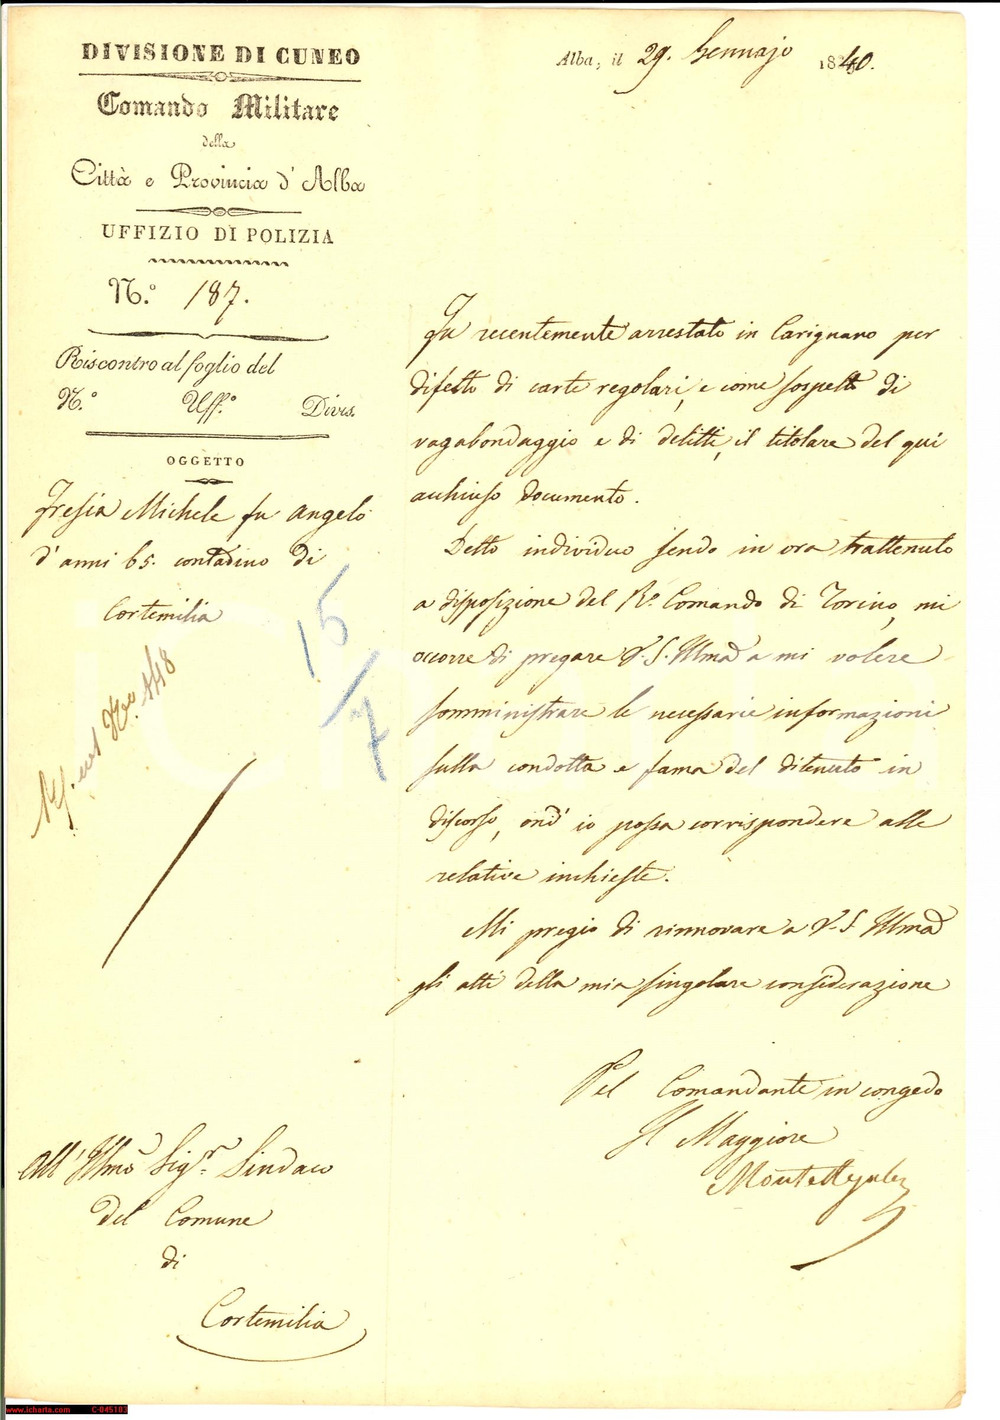 DIVISIONE DI CUNEO
Comando Militare
della
Città e Provincia d'Alba
UFFIZIO DI POLIZIA
N.° 187.
Riscontro al foglio del
N.° Uff.° Divis.
OGGETTO
Fresia Michele fu Angelo
d'anni 65. contadino di
Cortemilia
15/7
Alba, il 29. Gennajo 1840.
Fu recentemente arrestato in Carignano per
difetto di carte regolari, e come sospetto di
vagabondaggio e di delitti, il titolare del qui
acchiuso documento.
Detto individuo sendo in ora trattenuto
a disposizione del R.° Comando di Torino, mi
occorre di pregare V.S. Illma a mi volere
somministrare le necessarie informazioni
sulla condotta e fama del ditenuto in
discorso, ond' io possa corrispondere alle
relative inchieste.
Mi pregio di rinnovare a V.S. Illma
gli atti della mia singolare considerazione
Pel Comandante in congedo
Il Maggiore
All' Illmo Sigr. Sindaco
del Comune
di
Cortemilia
www.icharta.com C-045183